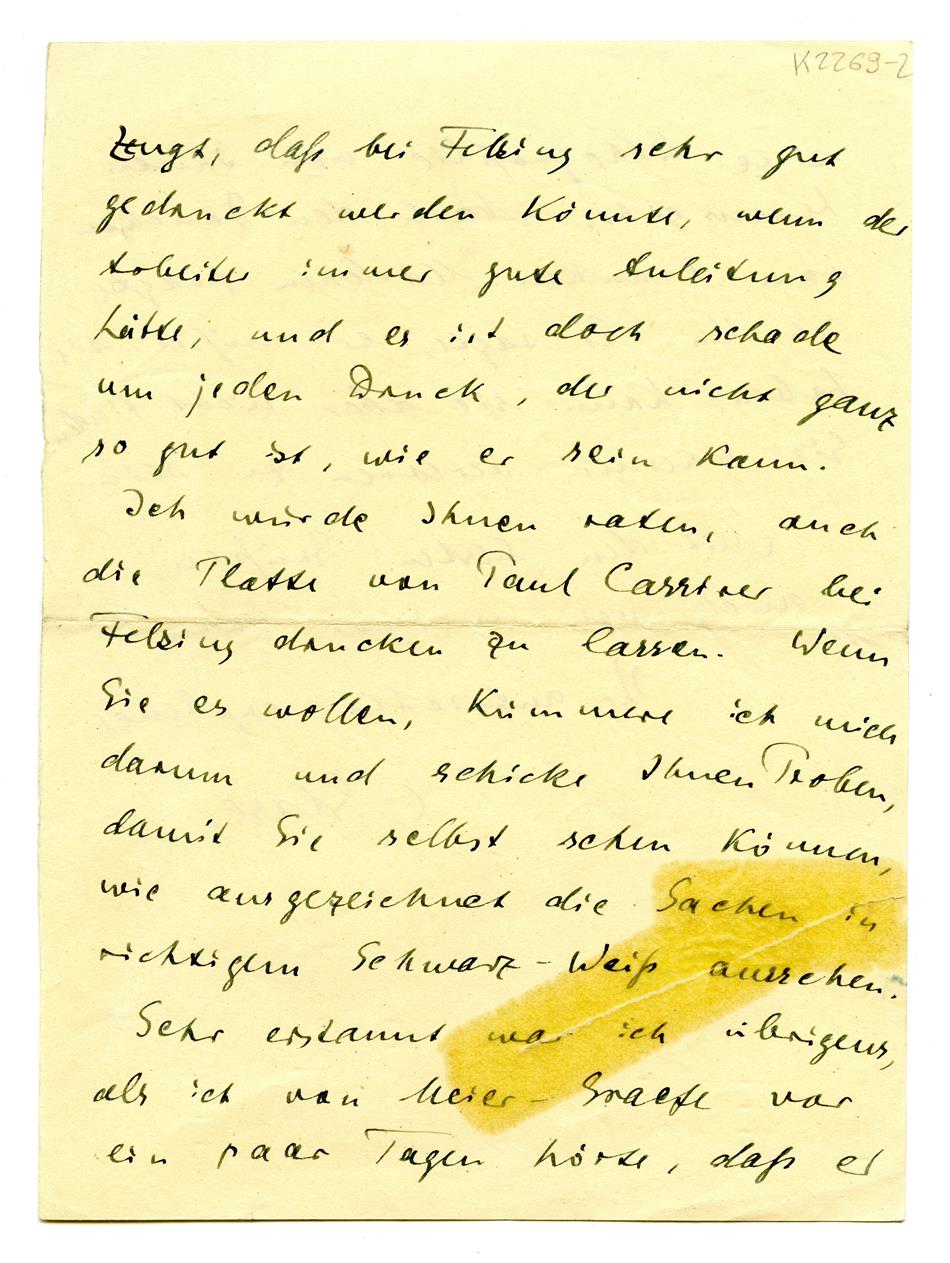 K2269-2
zeugt, daß bei Felsing sehr gut
gedruckt werden könnte, wenn der
Arbeiter immer gute Anleitung
hätte, und es ist doch schade
um jeden Druck, der nicht ganz
so gut ist, wie er sein kann.
Ich würde Ihnen raten, auch
die Platte von Paul Cassirer bei
Felsing drucken zu lassen. Wenn
Sie es wollen, kümmere ich mich
darum und schicke Ihnen Proben,
damit Sie selbst sehen können,
wie ausgezeichnet die Sachen in
richtigem Schwarz-Weiß aussehen.
Sehr erstaunt war ich übrigens,
als ich von Meier-Graefe vor
ein paar Tagen hörte, daß er